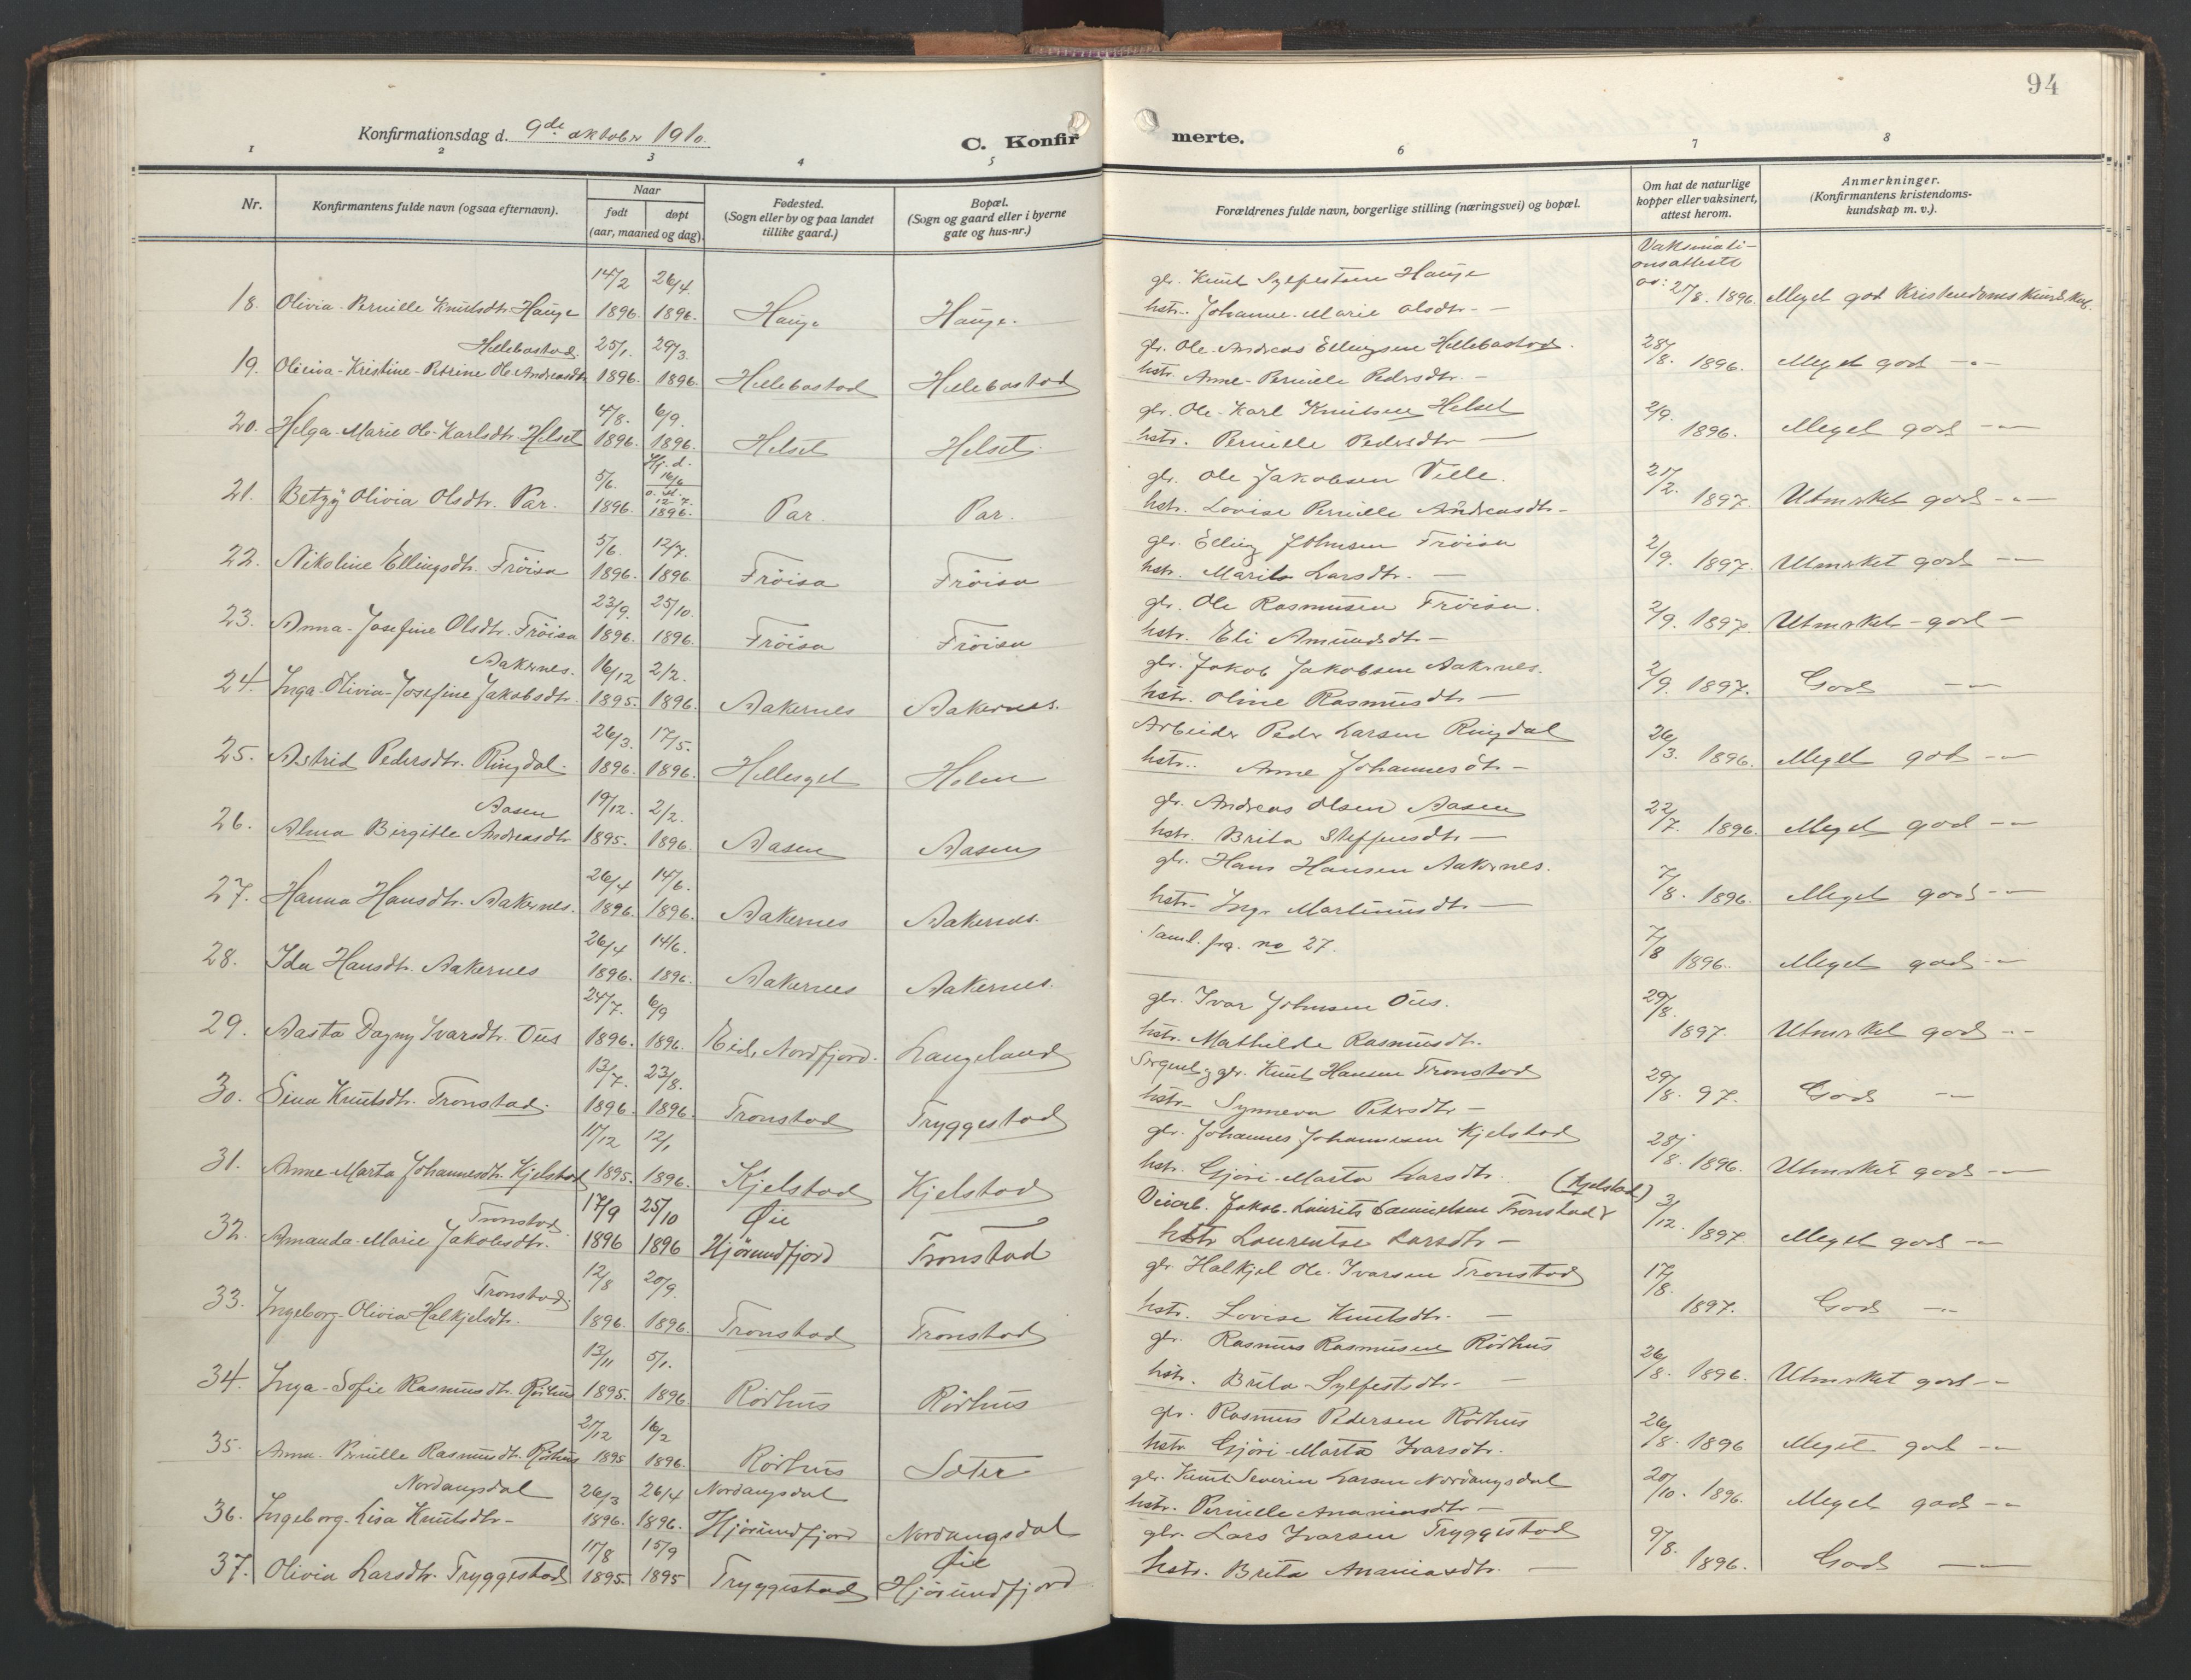 94
Konfirmationsdag d. 9de oktober 1910.
C. Konfirmerte.
1 2 3 4 5 6 7 8
Nr. Konfirmantens fulde navn (ogsaa efternavn). Naar født døpt (aar, maaned og dag). Fødested. (Sogn eller by og paa landet tillike gaard.) Bopæl. (Sogn og gaard eller i byerne gate og hus-nr.) Forældrenes fulde navn, borgerlige stilling (næringsvei) og bopæl. Om hat de naturlige kopper eller vaksinert, attest herom. Anmerkninger. (Konfirmantens kristendomskundskap m. v.).
14/2 26/4. gbr. Knut Sylfestsen Hauge Vaksinationsattest av:
18. Olivia-Pernille Knutsdtr. Hauge 1896. 1896. Hauge Hauge. hstr. Johanne-Marie Olsdtr. - 27/8. 1896. Meget god Kristendomskundskap.
Hellebostad. 25/1. 29/3. gbr. Ole-Andreas Ellingsen Hellebostad. 28/8. 1896.
19. Oliviva-Kristine-Petrine Ole Andreasdtr. 1896. 1896. Hellebostad Hellebostad hstr. Anne-Pernille Pedersdtr. - Meget god -"-
4/8. 6/9. gbr. Ole-Karl Knutsen Helset 2/9.
20. Helga-Marie Ole-Karlsdtr. Helset 1896. 1896. Helset Helset hstr. Pernille Pedersdtr - 1896. Meget god -"-
5/6. Hj. d. 16/6 gbr. Ole Jakobsen Velle. 27/2.
21. Betzÿ Olivia Olsdtr. Par. 1896. 12/7 1896. Par. Par. hstr. Lovise Pernille Andreasdtr - 1897. Utmerket god -"-
5/6. 12/7. gbr. Elling Johnsen Fröisa 2/9. 1897.
22. Nikoline Ellingsdtr. Fröisa 1896. 1896 Fröisa Fröisa hstr. Marita Larsdtr. - Utmerket god -"-
23/9. 25/10. gbr. Ole Rasmusen Fröisa. 2/9. 1897.
23. Anna-Josefine Olsdtr. Fröisa 1896. 1896. Fröisa Fröisa hstr. Eli Amundsdtr - Utmerket-god -
Aakernes. 16/12 2/2. gbr. Jakob Jakobsen Aakernes. 2/9. 1897.
24. Inga-Olivia-Josefine Jakobsdtr. 1895. 1896. Aakernes Aakernes. hstr. Oline Rasmusdtr - God -"-
26/3. 17/5. Arbeider Peder Larsen Ringdal 26/3. 1896.
25. Astrid Pedersdtr. Ringdal. 1896. 1896. Hellesylt Holm hstr. Anne Johannesdtr - Meget god -"-
Aasen 19/12. 2/2. gbr. Andreas Olsen Aasen 22/7. 1896.
26. Alma Birgitte Andreasdtr 1895. 1896. Aasen Aasen hstr. Brita Steffensdtr - Meget god -"-
26/4 14/6. gbr. Hans Hansen Aakernes. 7/8. 1896.
27. Hanna Hansdtr. Aakernes. 1896. 1896. Aakernes Aakernes. hstr. Inger Martinusdtr - Meget god -"-
26/4 14/6. Saml. frg. no 27. 7/8
28. Ida Hansdtr. Aakernes 1896. 1896. Aakernes Aakernes. 1896. Meget god -"-
24/7. 6/9 gbr. Ivar Johnsen Ous. 29/8.
29. Aasta Dagny Ivarsdtr. Ous 1896. 1896. Eid, Nordfjord. Langeland hstr. Mathilde Rasmusdtr. 1897. Utmerket god -"-
13/7. 23/8. Sergent og gbr. Knut Hansen Tronstad 29/8. 97.
30. Sina Knutsdtr. Tronstad. 1896. 1896. Tronstad Tryggestad hstr. Synneva Petersdtr - God -"-
11/12 12/1 gbr. Johannes Johannesen Kjelstad 28/8. 1896.
31. Anne-Marta Johannesdtr. Kjelstad 1895. 1896. Kjelstad Kjelstad hstr. Gjöri-Marta Larsdtr. Utmerket god -"-
Tronstad 17/9 25/10 Øie Veiarb. Jakob-Laurits Samuelsen Tronstad (Kjelstad) 3/12. 1897
32. Amanda-Marie Jakobsdtr. 1896 1896 Hjörundfjord Tronstad hstr Laurentse Larsdtr - Meget god -"-
Tronstad. 12/8 20/9. gbr. Halkjel Ole-Ivarsen Tronstad 17/8.
33. Ingeborg-Olivia-Halkjelsdtr. 1896. 1896. Tronstad Tronstad hstr. Lovise Knutsdtr. - 1897. God -"-
13/11 5/1. gbr. Rasmus Rasmusen Rörhus 26/8. 1896.
34. Inga-Sofie Rasmusdtr. Rörhus 1895. 1896 Rörhus Rörhus hstr. Brita-Sylfestsdtr. - Utmerket god -"-
27/12 16/2 gbr. Rasmus Pedersen Rörhus 26/8. 1896
35. Anna-Pernille Rasmusdtr. Rörhus 1895 1896. Rörhus Sæter hstr. Gjöri-Marta Ivarsdtr. Meget god -"-
Nordangsdal 26/3 26/4 Nordangsdal gbr. Knut-Severin Larsen Nordangsdal 20/10. 1896.
36. Ingeborg-Lisa Knutsdtr- 1896. 1896. Hjörundfjord Nordangsdal hstr. Pernille Ananiasdtr - Meget god -"-
11/8 15/9 Øie gbr. Lars Ivarsen Tryggestad 9/8.
37. Olivia Larsdtr. Tryggestad 1895. 1895 Tryggestad Hjörundfjord hstr. Brita Ananiasdtr. - 1896. God -"-